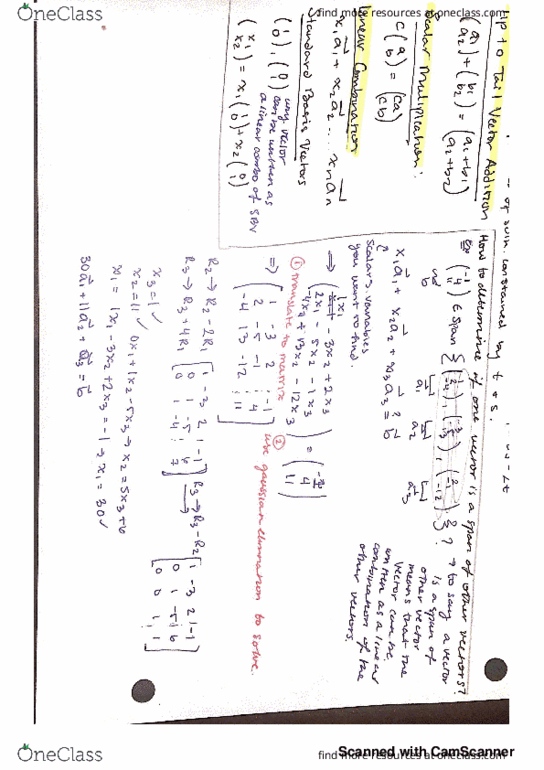 OneClass
find more resources at oneclass.com
Tip to Tail Vector Addition
(a1 a2) + (b1 b2) = (a1+b1 a2+b2)
Scalar Multiplication:
c(a b) = (ca cb)
Linear Combination
x1a1 + x2a2 ... xnan
Standard Basis Vectors
(1 0), (0 1) any vector
can be written as
a linear combo of SBV
(x1 x2) = x1(1 0) + x2(0 1)
constrained by t & s.
How to determine if one vector is a span of other vectors?
(-1 4 11) ∈ Span {(1 2 -4), (-3 -5 13), (2 -1 -12)} ?
b a1 a2 a3
→ to say a vector
is a span of
other vector
means that the
vector can be
written as a linear
combination of the
other vectors.
x1a1 + x2a2 + x3a3 ?= b
scalars, variables
you want to find.
⇒ (1x1 - 3x2 + 2x3
2x1 - 5x2 - 1x3
-4x1 + 13x2 - 12x3) = (-1 4 11)
① translate to matrix
② use gaussian elimination to solve.
⇒ [1 -3 2 | -1
2 -5 -1 | 4
-4 13 -12 | 11]
R2 → R2 - 2R1
R3 → R3 + 4R1
[1 -3 2 | -1
0 1 -5 | 6
0 1 -4 | 7]
R3 → R3 - R2
[1 -3 2 | -1
0 1 -5 | 6
0 0 1 | 1]
x3 = 1 ✓
x2 = 11 ✓ 0x1 + 1x2 - 5x3 → x2 = 5x3 + 6
x1 = 1x1 - 3x2 + 2x3 = -1 → x1 = 30 ✓
30a1 + 11a2 + a3 = b
OneClass
OneClass
find more resources at oneclass.com
Scanned with CamScanner